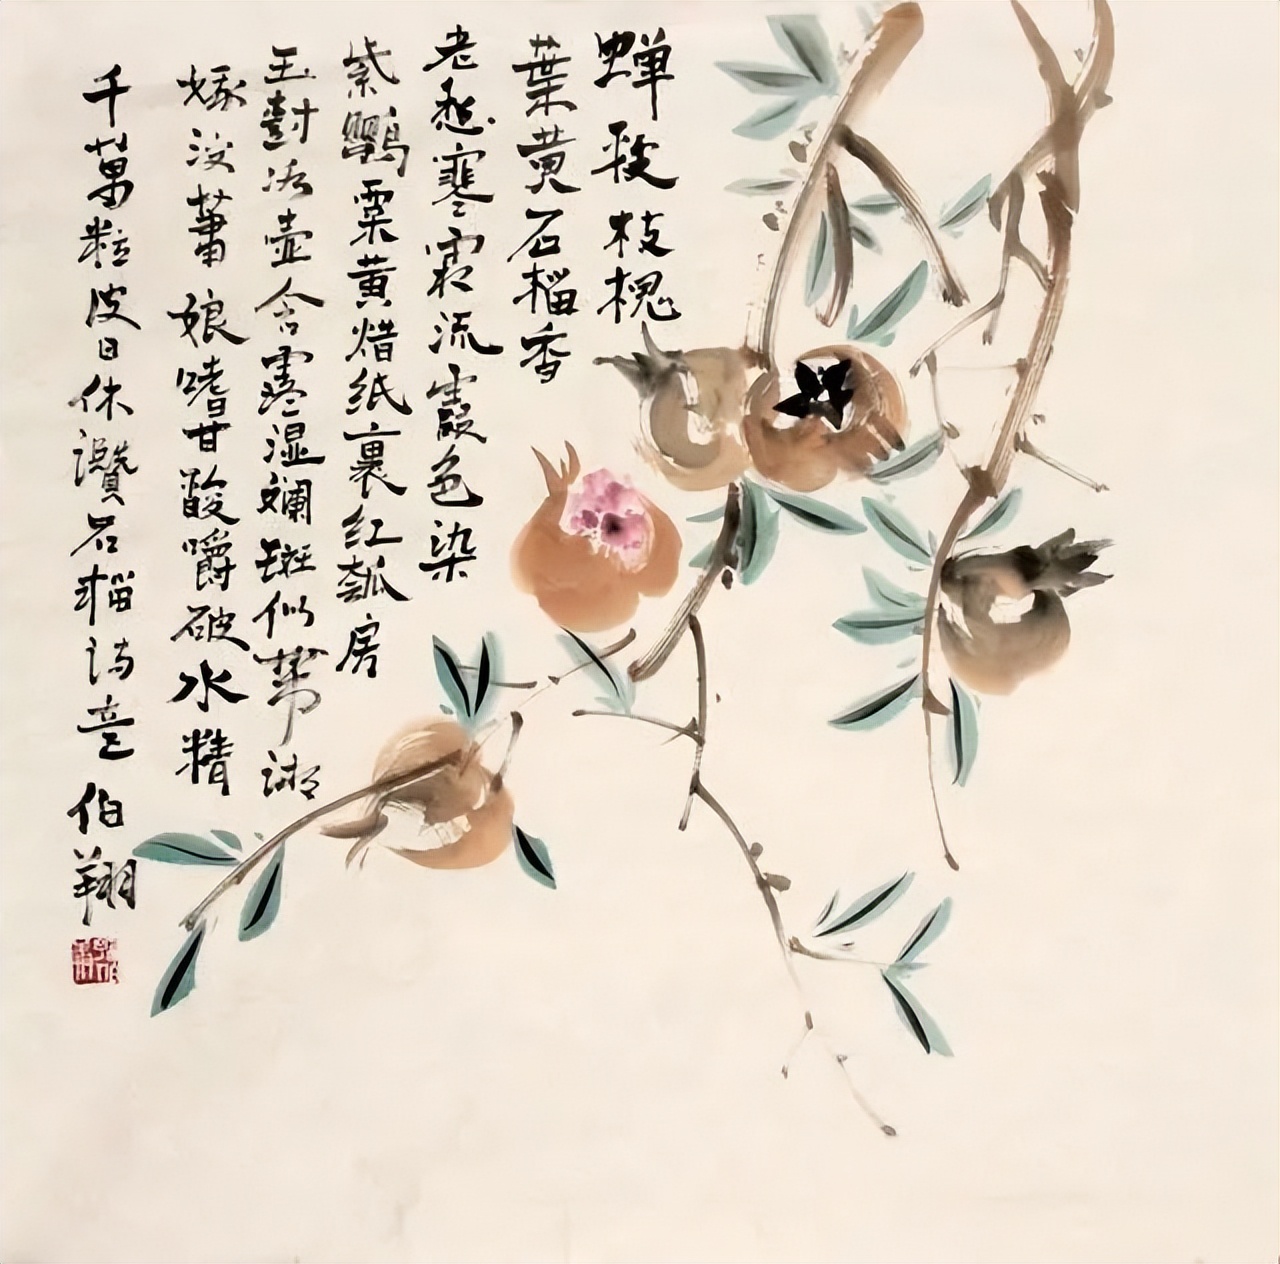 蟬枝槐
葉黄石榴香
老愁寒霜流霞色染
紫鸚粟黄焟纸裹红瓠房
玉對冰壺含露湿斓斑似帶湘
娥泣蕭娘嗜甘酸嚼破水精
千萬粒皮日休讚石榴詩意伯翔